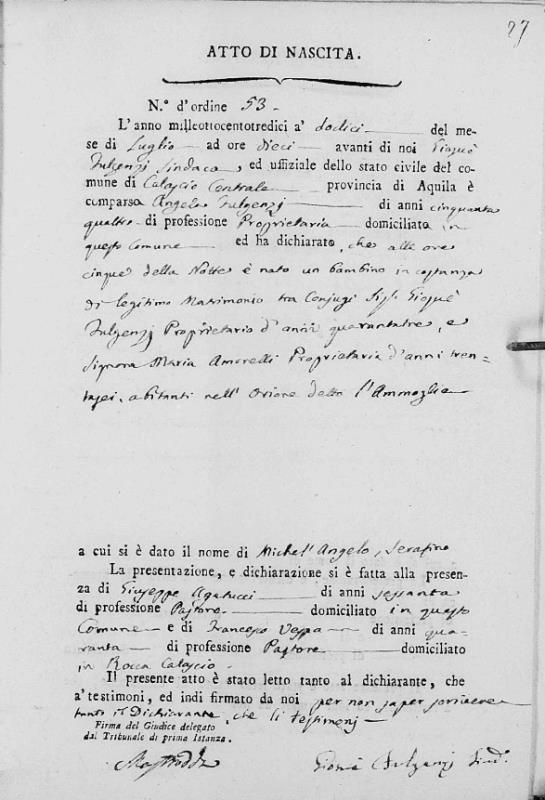 27
ATTO DI NASCITA.
N.º d'ordine 53.
L'anno milleottocentotredici a' dodici del me-
se di Luglio ad ore dieci avanti di noi Giosuè
Fulgenzi Sindaco, ed uffiziale dello stato civile del co-
mune di Calascio Centrale provincia di Aquila è
comparso Angelo Fulgenzj di anni cinquanta
quattro di professione Proprietario domiciliato in
questo Comune ed ha dichiarato, che alle ore
cinque della Notte è nato un bambino in costanza
di legitimo Matrimonio tra Conjugi Sig. Giosuè
Fulgenzj Proprietario d'anni quarantatre, e
Signora Maria Amorelli Proprietaria d'anni tren-
tasei, abitanti nell' Orione detto l'Ammoglie
a cui si è dato il nome di Michel' Angelo, Serafino
La presentazione, e dichiarazione si è fatta alla presen-
za di Giuseppe Agatucci di anni sessanta
di professione Pastore domiciliato in questo
Comune e di Francesco Vespa di anni qua-
ranta di professione Pastore domiciliato
in Rocca Calascio.
Il presente atto è stato letto tanto al dichiarante, che
a' testimoni, ed indi firmato da noi per non saper scrivere
tanto il Dichiarante, che li testimonj
Firma del Giudice delegato
dal Tribunale di prima Istanza.
Giosuè Fulgenzj Sind.